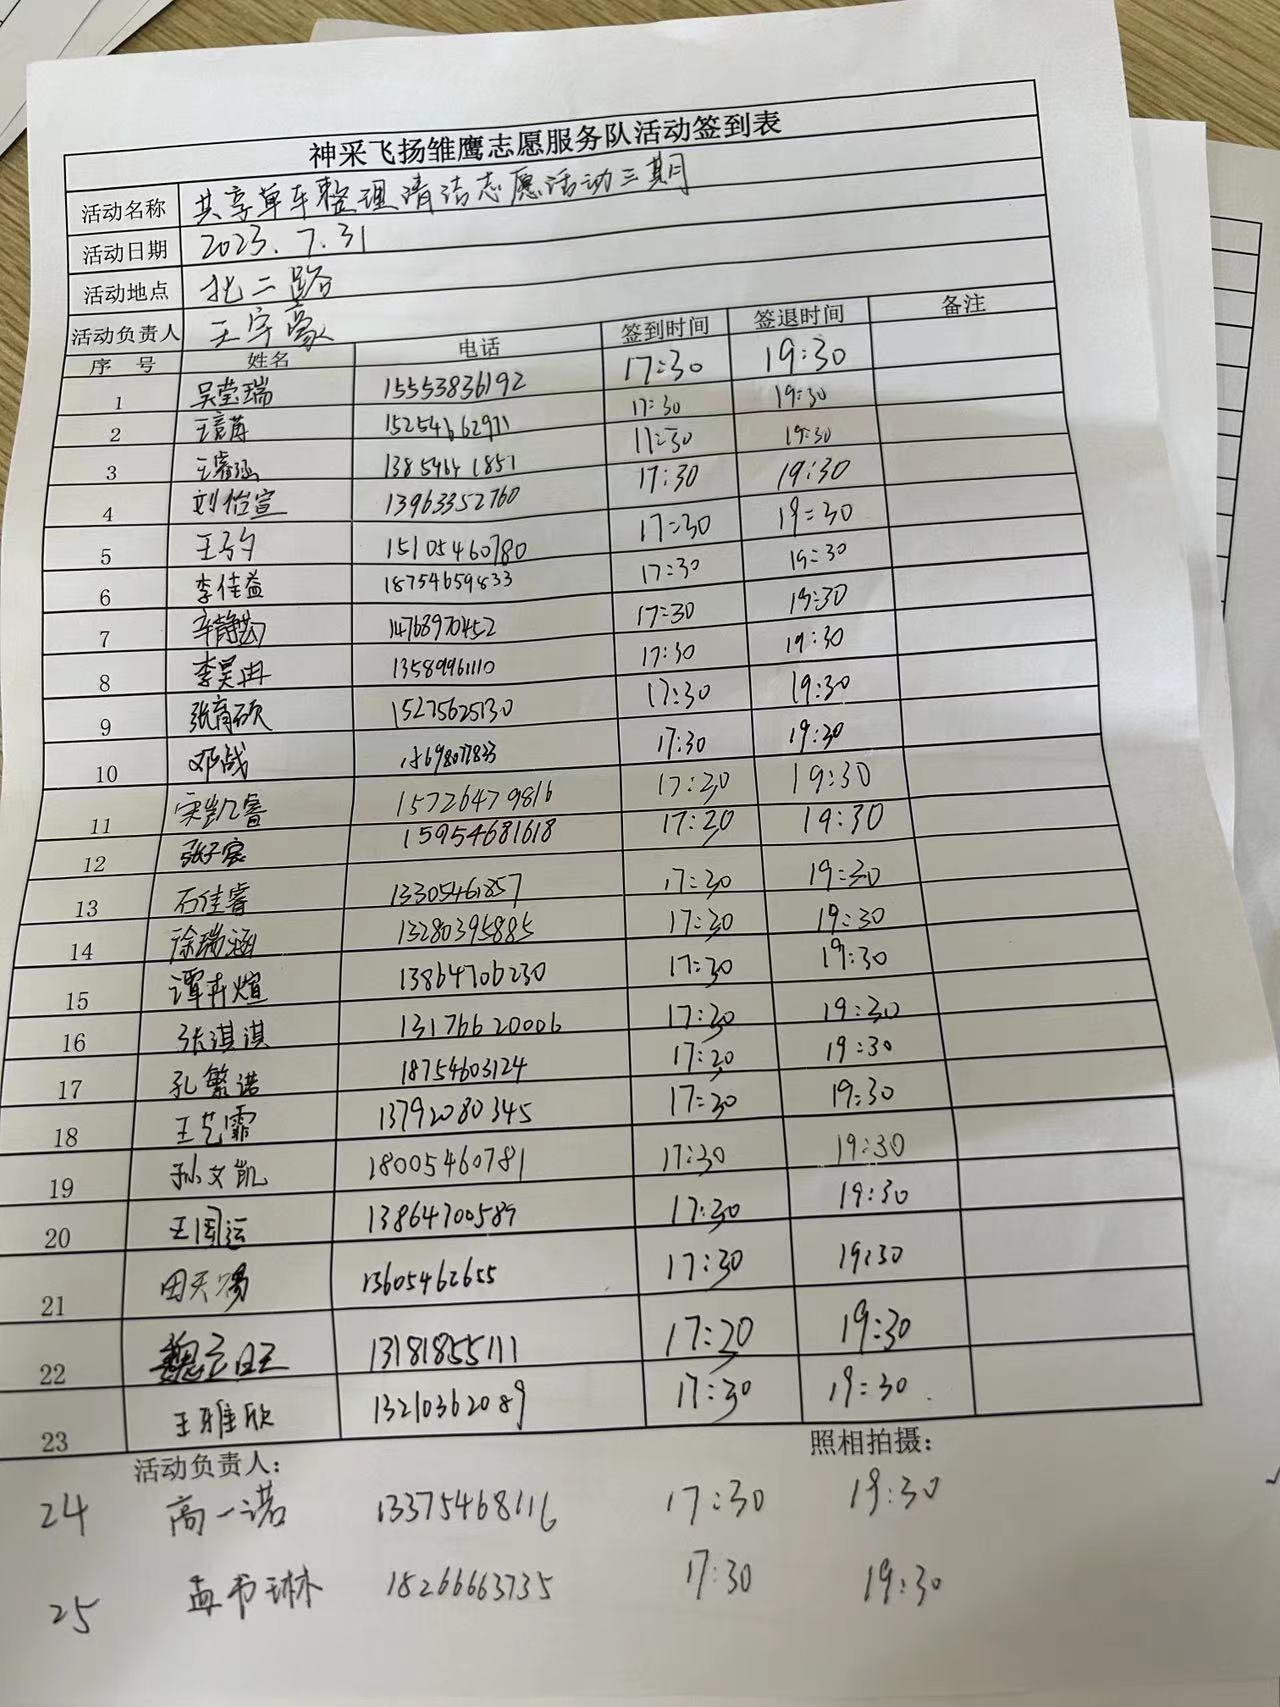 神采飞扬雏鹰志愿服务队活动签到表
活动名称 共享单车整理清洁志愿活动三期
活动日期 2023.7.31
活动地点 北二路
活动负责人 王宇豪
序号 姓名 电话 签到时间 签退时间 备注
1 吴莹瑞 15553836192 17:30 19:30
2 15254662971 17:30 19:30
3 王睿涵 13854641851 17:30 19:30
4 刘怡宣 13963352760 17:30 19:30
5 王子夕 15105460780 17:30 19:30
6 李佳益 18754659833 17:30 19:30
7 14768970452 17:30 19:30
8 李昊冉 13589961110 17:30 19:30
9 张育硕 15275625130 17:30 19:30
10 邓战 17:30 19:30
11 宋凯睿 15726479816 17:30 19:30
12 张子宸 15954681618 17:30 19:30
13 石佳睿 13305461857 17:30 19:30
14 徐瑞涵 13280395885 17:30 19:30
15 谭卉煊 13864706230 17:30 19:30
16 张淇淇 13176620006 17:30 19:30
17 孔繁诺 18754603124 17:30 19:30
18 王艺霏 13792080345 17:30 19:30
19 孙文凯 18005460781 17:30 19:30
20 王国运 13864700589 17:30 19:30
21 田天赐 13605462655 17:30 19:30
22 13181855111 17:30 19:30
23 王雅欣 13210362089 17:30 19:30
活动负责人: 照相拍摄:
24 高一诺 13375468116 17:30 19:30
25 孟书琳 18266663735 17:30 19:30